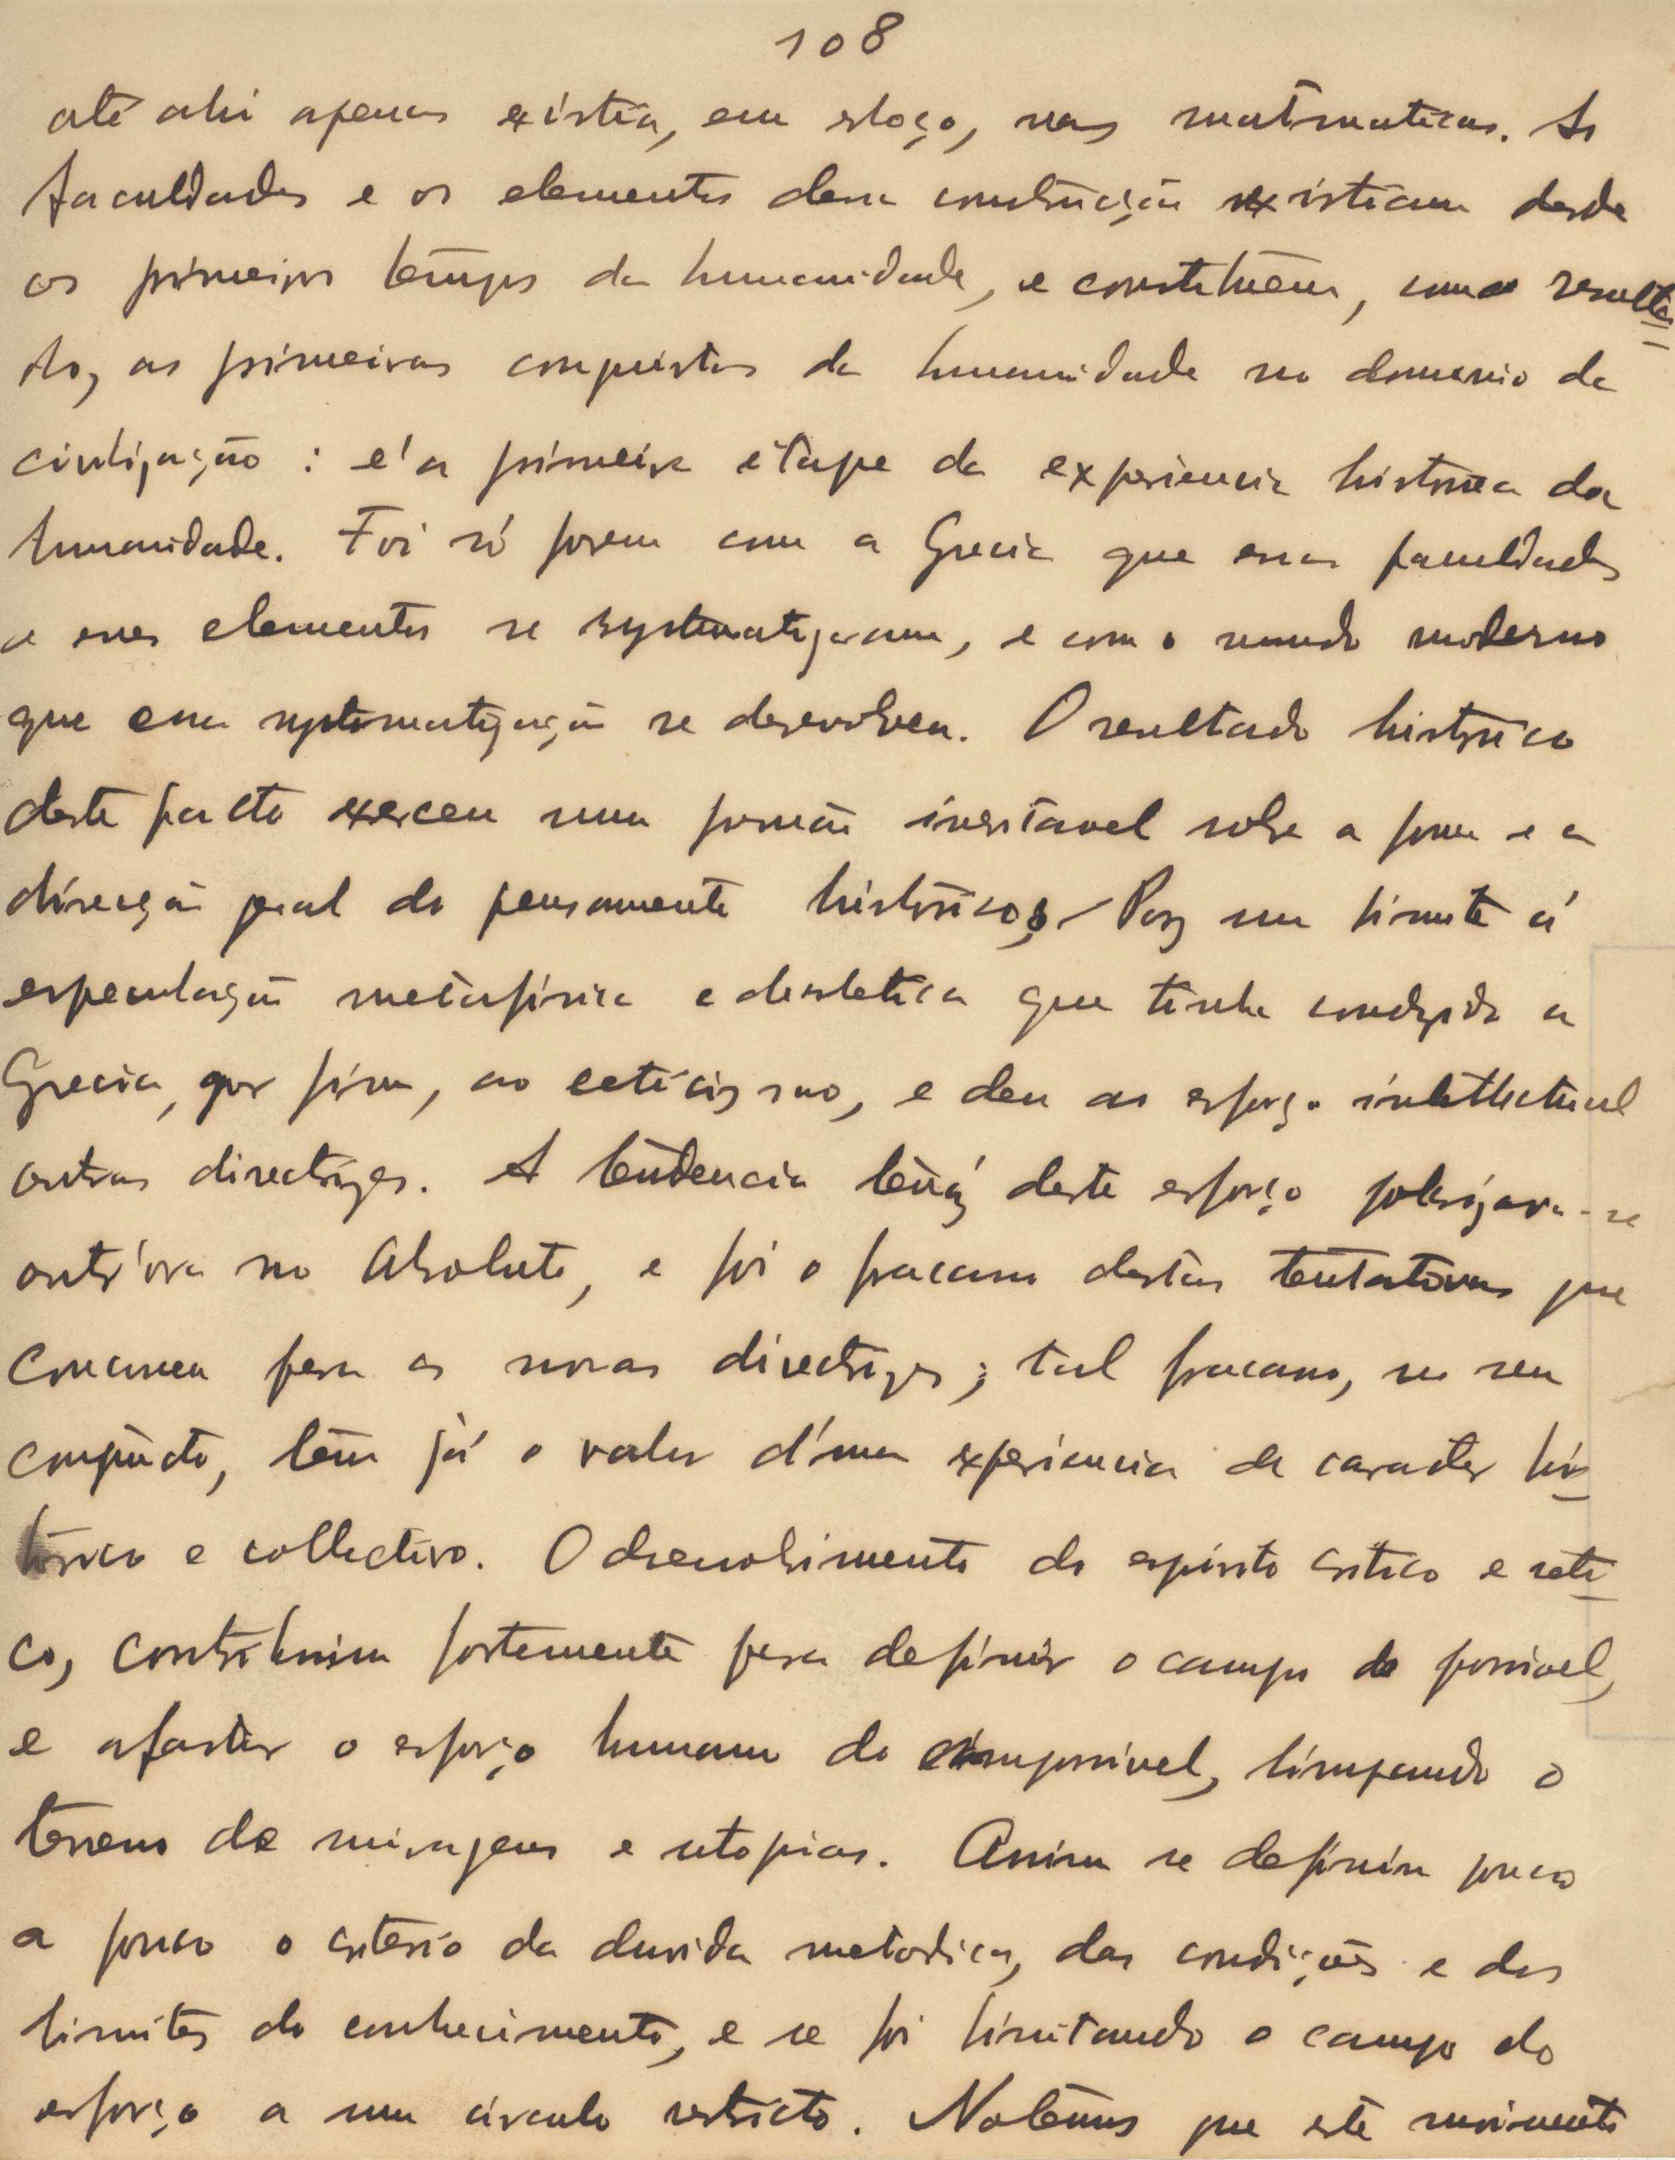 108
até ahi apenas existia, em esboço, nas matematicas. As
faculdades e os elementos dessa construcção existiam desde
os primeiros tempos da humanidade, e constituem, como resulta
do, as primeiras conquistas da humanidade no dominio da
civilização : é a primeira etape da experiencia historica da
humanidade. Foi só porem com a Grecia que essas faculdades
e esses elementos se systematizaram, e com o mundo moderno
que essa systematização se desenvolveu. O resultado historico
deste facto exerceu uma pressão inevitavel sobre a forma e a
direcção geral do pensamento historico. Poz um limite á
especulação metafisica e dialetica que tinha conduzido a
Grecia, por fim, ao ceticismo, e deu ao esforço intellectual
outras directrizes. A tendencia tenáz deste esforço polarizava-se
outr'ora no Absoluto, e foi o fracasso destas tentativas que
concorreu para as novas directrizes; tal fracasso, no seu
conjuncto, tem já o valor d'uma experiencia de caracter his
torico e collectivo. O desenvolvimento do espirito critico e ceti
co, contribuiu fortemente para definir o campo do possivel,
e afastar o esforço humano do impossivel, limpando o
terreno de miragens e utopias. Assim se definiu pouco
a pouco o criterio da duvida metodica, das condições e dos
limites do conhecimento, e se foi limitando o campo do
esforço a um circulo restricto. Notêmos que este movimento